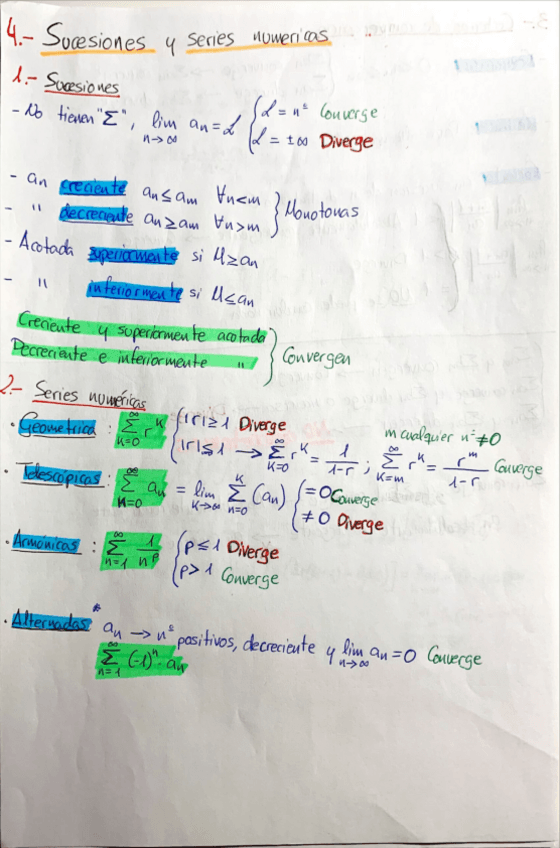 4.- Sucesiones y series numericas
1.- Sucesiones
- No tienen "Σ", lim n→∞ an = L { L = nº Converge
L = ±∞ Diverge
- an creciente an ≤ am ∀n<m
- " decreciente an ≥ am ∀n>m } Monotonas
- Acotada superiormente si M ≥ an
- " inferiormente si M ≤ an
Creciente y superiormente acotada
Decreciente e inferiormente " } Convergen
2.- Series numéricas
m cualquier nº ≠0
· Geometrica : ∞ Σ k=0 r^k { |r| ≥ 1 Diverge
|r| ≤ 1 → ∞ Σ k=0 r^k = 1/(1-r) ; ∞ Σ k=m r^k = r^m/(1-r) Converge
· Telescópicas : ∞ Σ n=0 an = lim k→∞ K Σ n=0 (an) { =0 Converge
≠0 Diverge
· Armónicas : ∞ Σ n=1 1/n^p { p ≤ 1 Diverge
p > 1 Converge
· Alternadas * an → nº positivos, decreciente y lim n→∞ an = 0 Converge
∞ Σ n=1 (-1)^n · an